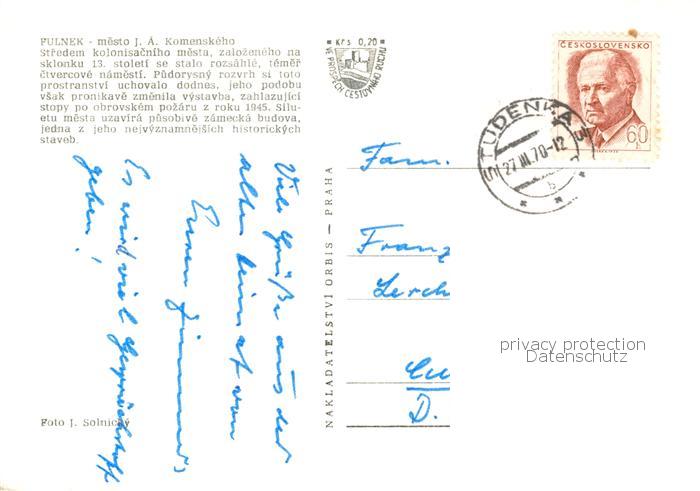 FULNEK - město J. A. Komenského
Středem kolonisačního města, založeného na
sklonku 13. století se stalo rozsáhlé, téměř
čtvercové náměstí. Půdorysný rozvrh si toto
prostranství uchovalo dodnes, jeho podobu
však pronikavě změnila výstavba, zahlazující
stopy po obrovském požáru z roku 1945. Silu-
etu města uzavírá působivě zámecká budova,
jedna z jeho nejvýznamnějších historických
staveb.
Kčs 0,20
VE PROSPĚCH CESTOVNÍHO RUCHU
ČESKOSLOVENSKO
60
STUDÉNKA
27.III.70-12
b
Viele Grüße aus der
alten Heimat von
Euren
Es wird viel Gesprächstoff
geben!
NAKLADATELSTVÍ ORBIS — PRAHA
Fam.
Franz
Lerch
D.
privacy protection
Datenschutz
Foto J. Solnický